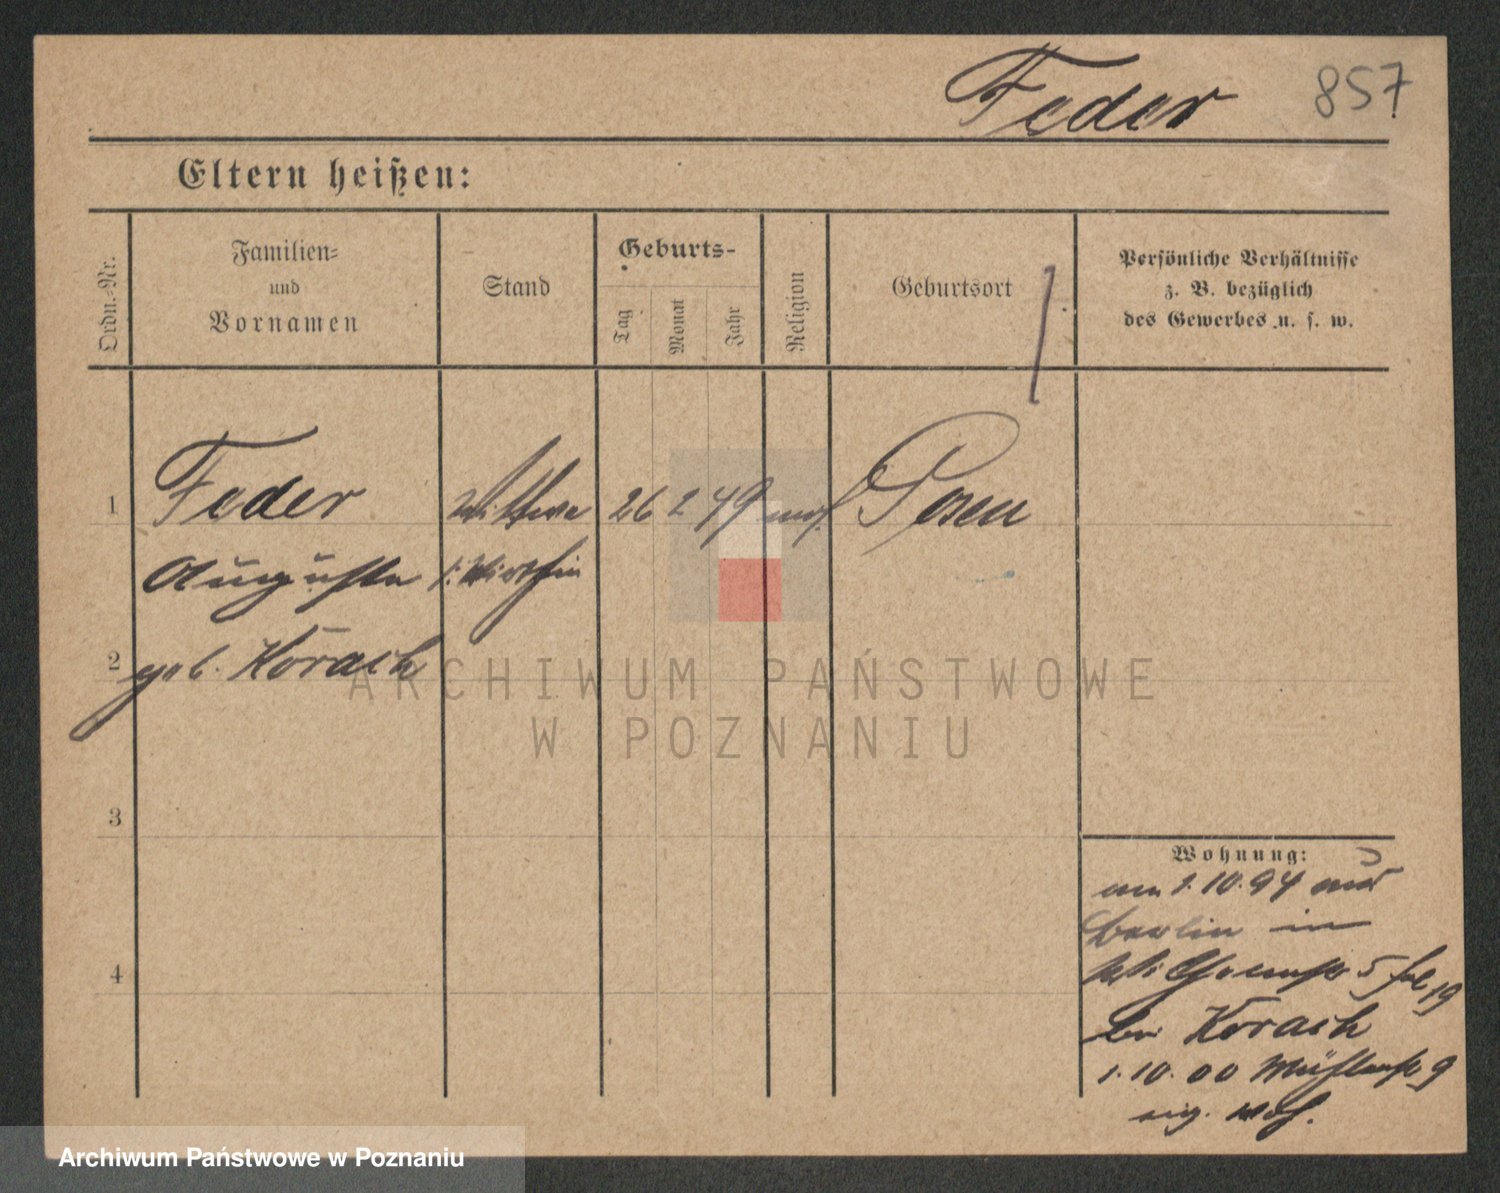 Feder 857
Eltern heißen:
Ordn.-Nr.
Familien-
und
Vornamen
Stand
Geburts-
Tag
Monat
Jahr
Religion
Geburtsort
Persönliche Verhältnisse
z. B. bezüglich
des Gewerbes u. s. w.
1 Feder Wittwe 26 2 49 mos. Posen
Auguste Wirthin
2 geb. Korach
3
4
Wohnung:
am 1.10.94 aus
Berlin in
5
19
bei Korach
1.10.00 Mühlenstr 9
eig. Woh.
ARCHIWUM PAŃSTWOWE
W POZNANIU
Archiwum Państwowe w Poznaniu